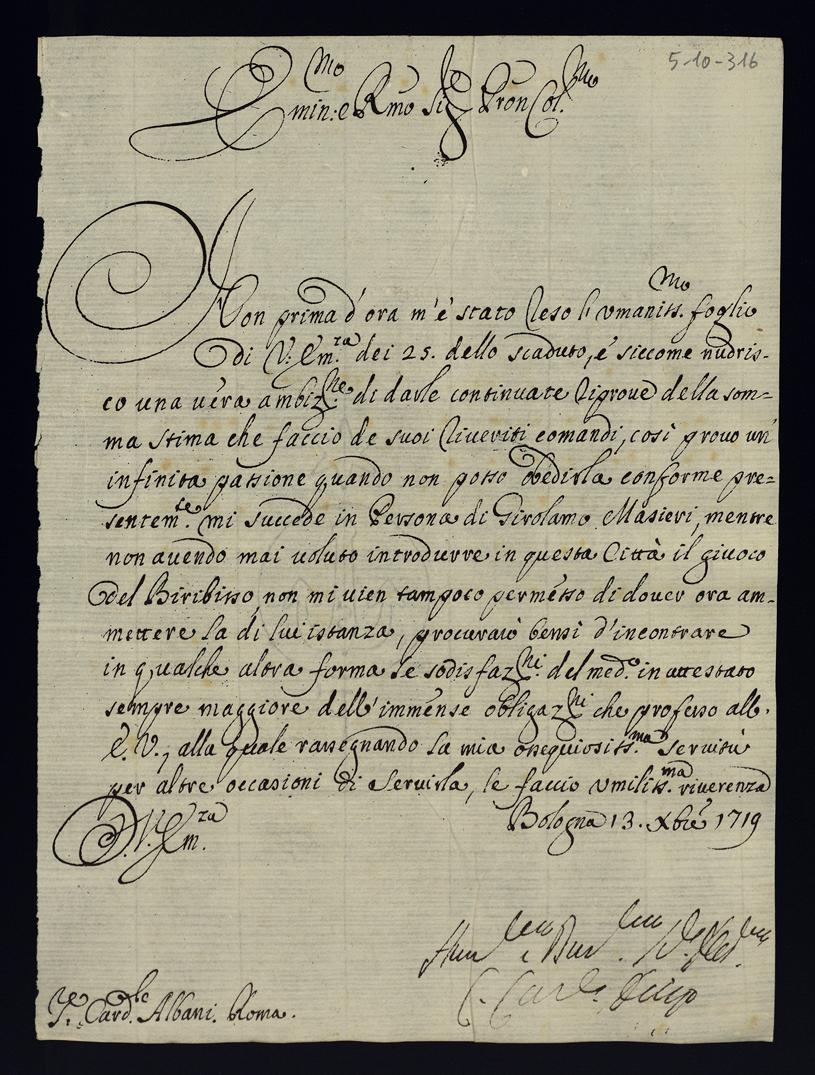 5-10-316
Emin:mo e Rmo Sig.re Pron Col.mo
Non prima d'ora m'è stato reso l'vmaniss.mo foglio
di V. Em.za dei 25. dello scaduto, e siccome nudris-
co una vera ambiz.ne di darle continuate riprove della som=
ma stima che faccio de suoi riveriti comandi, così provo un'
infinita passione quando non posso obedirla conforme pre=
sentem.te mi succede in Persona di Girolamo Masieri, mentre
non avendo mai voluto introdurre in questa Città il givoco
del Biribisso, non mi vien tampoco permesso di dover ora am-
mettere la di lui istanza, procurarò bensì d'incontrare
in qualche altra forma le sodisfaz.ni del med.o in attestato
sempre maggiore dell'immense obligaz.ni che professo all'
E. V., alla quale rassegnando la mia ossequiosiss.ma servitù
per altre occasioni di servirla, le faccio vmiliss.ma riverenza
D. V. Em.za
Bologna 13. Xbre 1719
Card.le Albani. Roma.